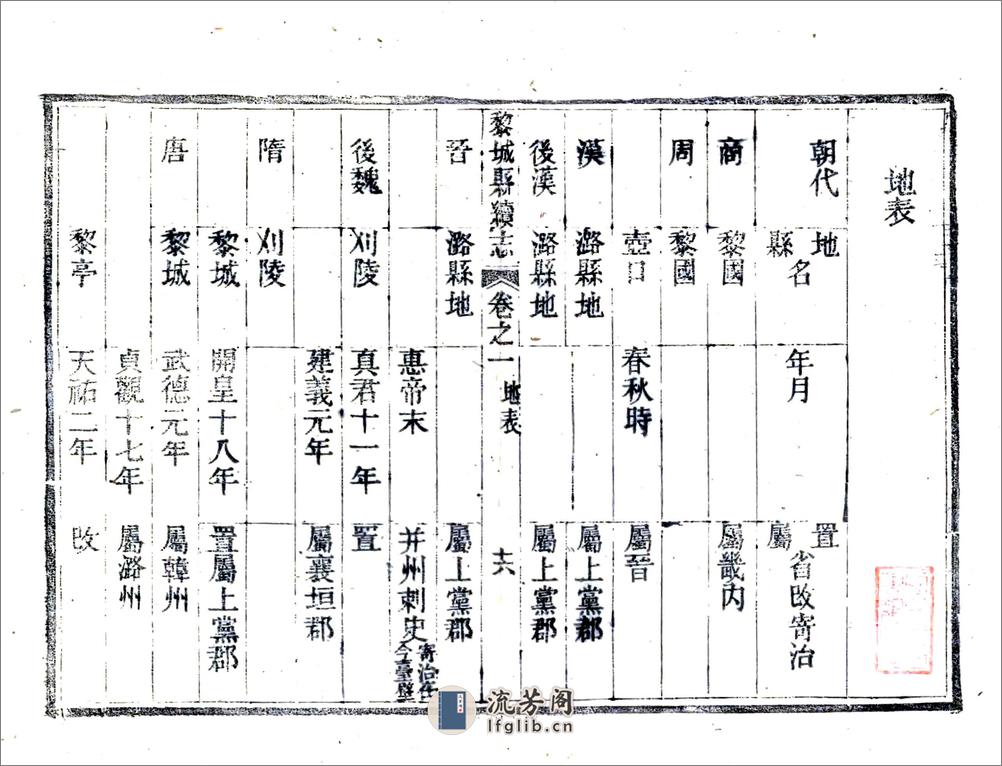 地表
朝代 地名縣 年月 置省改寄治屬
商 黎國 屬畿內
周 黎國
壺口 春秋時 屬晉
漢 潞縣地 屬上黨郡
後漢 潞縣地 屬上黨郡
黎城縣續志 卷之一 地表 十六
晉 潞縣地 屬上黨郡
惠帝末 并州刺史寄治在今臺壁
後魏 刈陵 真君十一年 置
建義元年 屬襄垣郡
隋 刈陵
黎城 開皇十八年 置屬上黨郡
唐 黎城 武德元年 屬韓州
貞觀十七年 屬潞州
黎亭 天祐二年 改
流芳阁
lfglib.cn